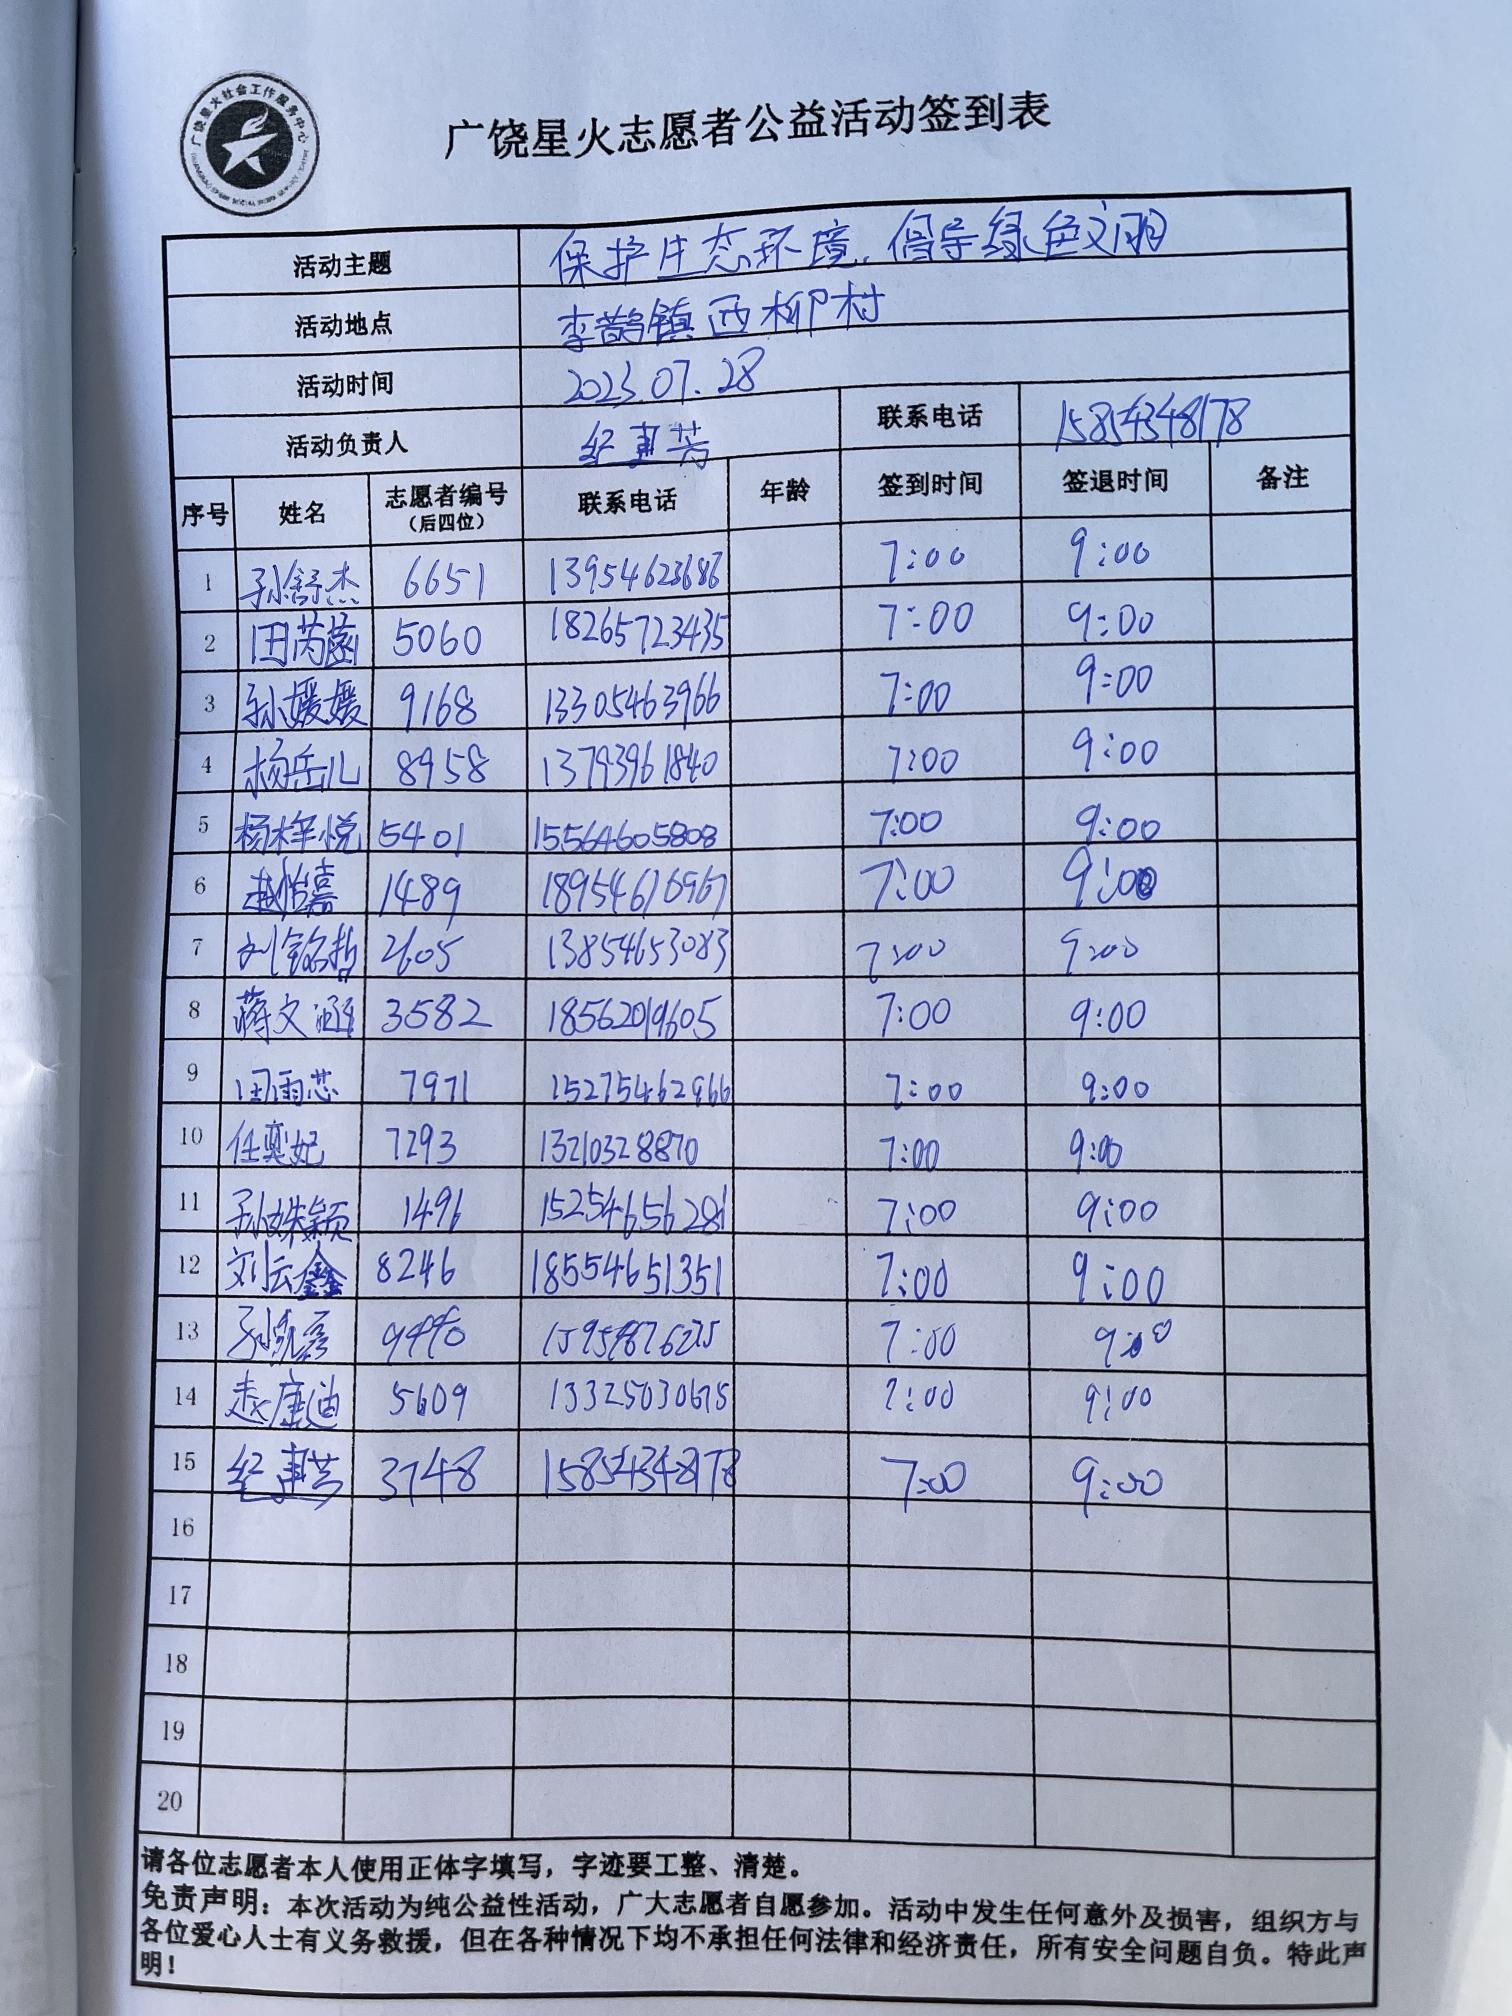 广饶星火社会工作服务中心
广饶星火志愿者公益活动签到表
活动主题 保护生态环境,倡导绿色文明
活动地点 李鹊镇西柳村
活动时间 2023.07.28
活动负责人 纪建芳 联系电话 15854348178
序号 姓名 志愿者编号（后四位） 联系电话 年龄 签到时间 签退时间 备注
1 孙舒杰 6651 13954623686 7:00 9:00
2 田芮菡 5060 18265723435 7:00 9:00
3 孙媛媛 9168 13305463966 7:00 9:00
4 杨岳儿 8958 13793961840 7:00 9:00
5 杨梓悦 5401 15564605808 7:00 9:00
6 赵怡嘉 1489 18954676967 7:00 9:00
7 刘铭哲 2605 13854653083 7:00 9:00
8 蒋文涵 3582 18562019605 7:00 9:00
9 田雨芯 7971 15275462966 7:00 9:00
10 任奕妃 7293 13210328870 7:00 9:00
11 孙姝颖 1496 15254656286 7:00 9:00
12 刘云鑫 8246 18554651351 7:00 9:00
13 9490 7:00 9:00
14 赵唐迪 5609 13325030675 7:00 9:00
15 纪建芳 3748 15854348178 7:00 9:00
16
17
18
19
20
请各位志愿者本人使用正体字填写，字迹要工整、清楚。
免责声明：本次活动为纯公益性活动，广大志愿者自愿参加。活动中发生任何意外及损害，组织方与
各位爱心人士有义务救援，但在各种情况下均不承担任何法律和经济责任，所有安全问题自负。特此声
明！